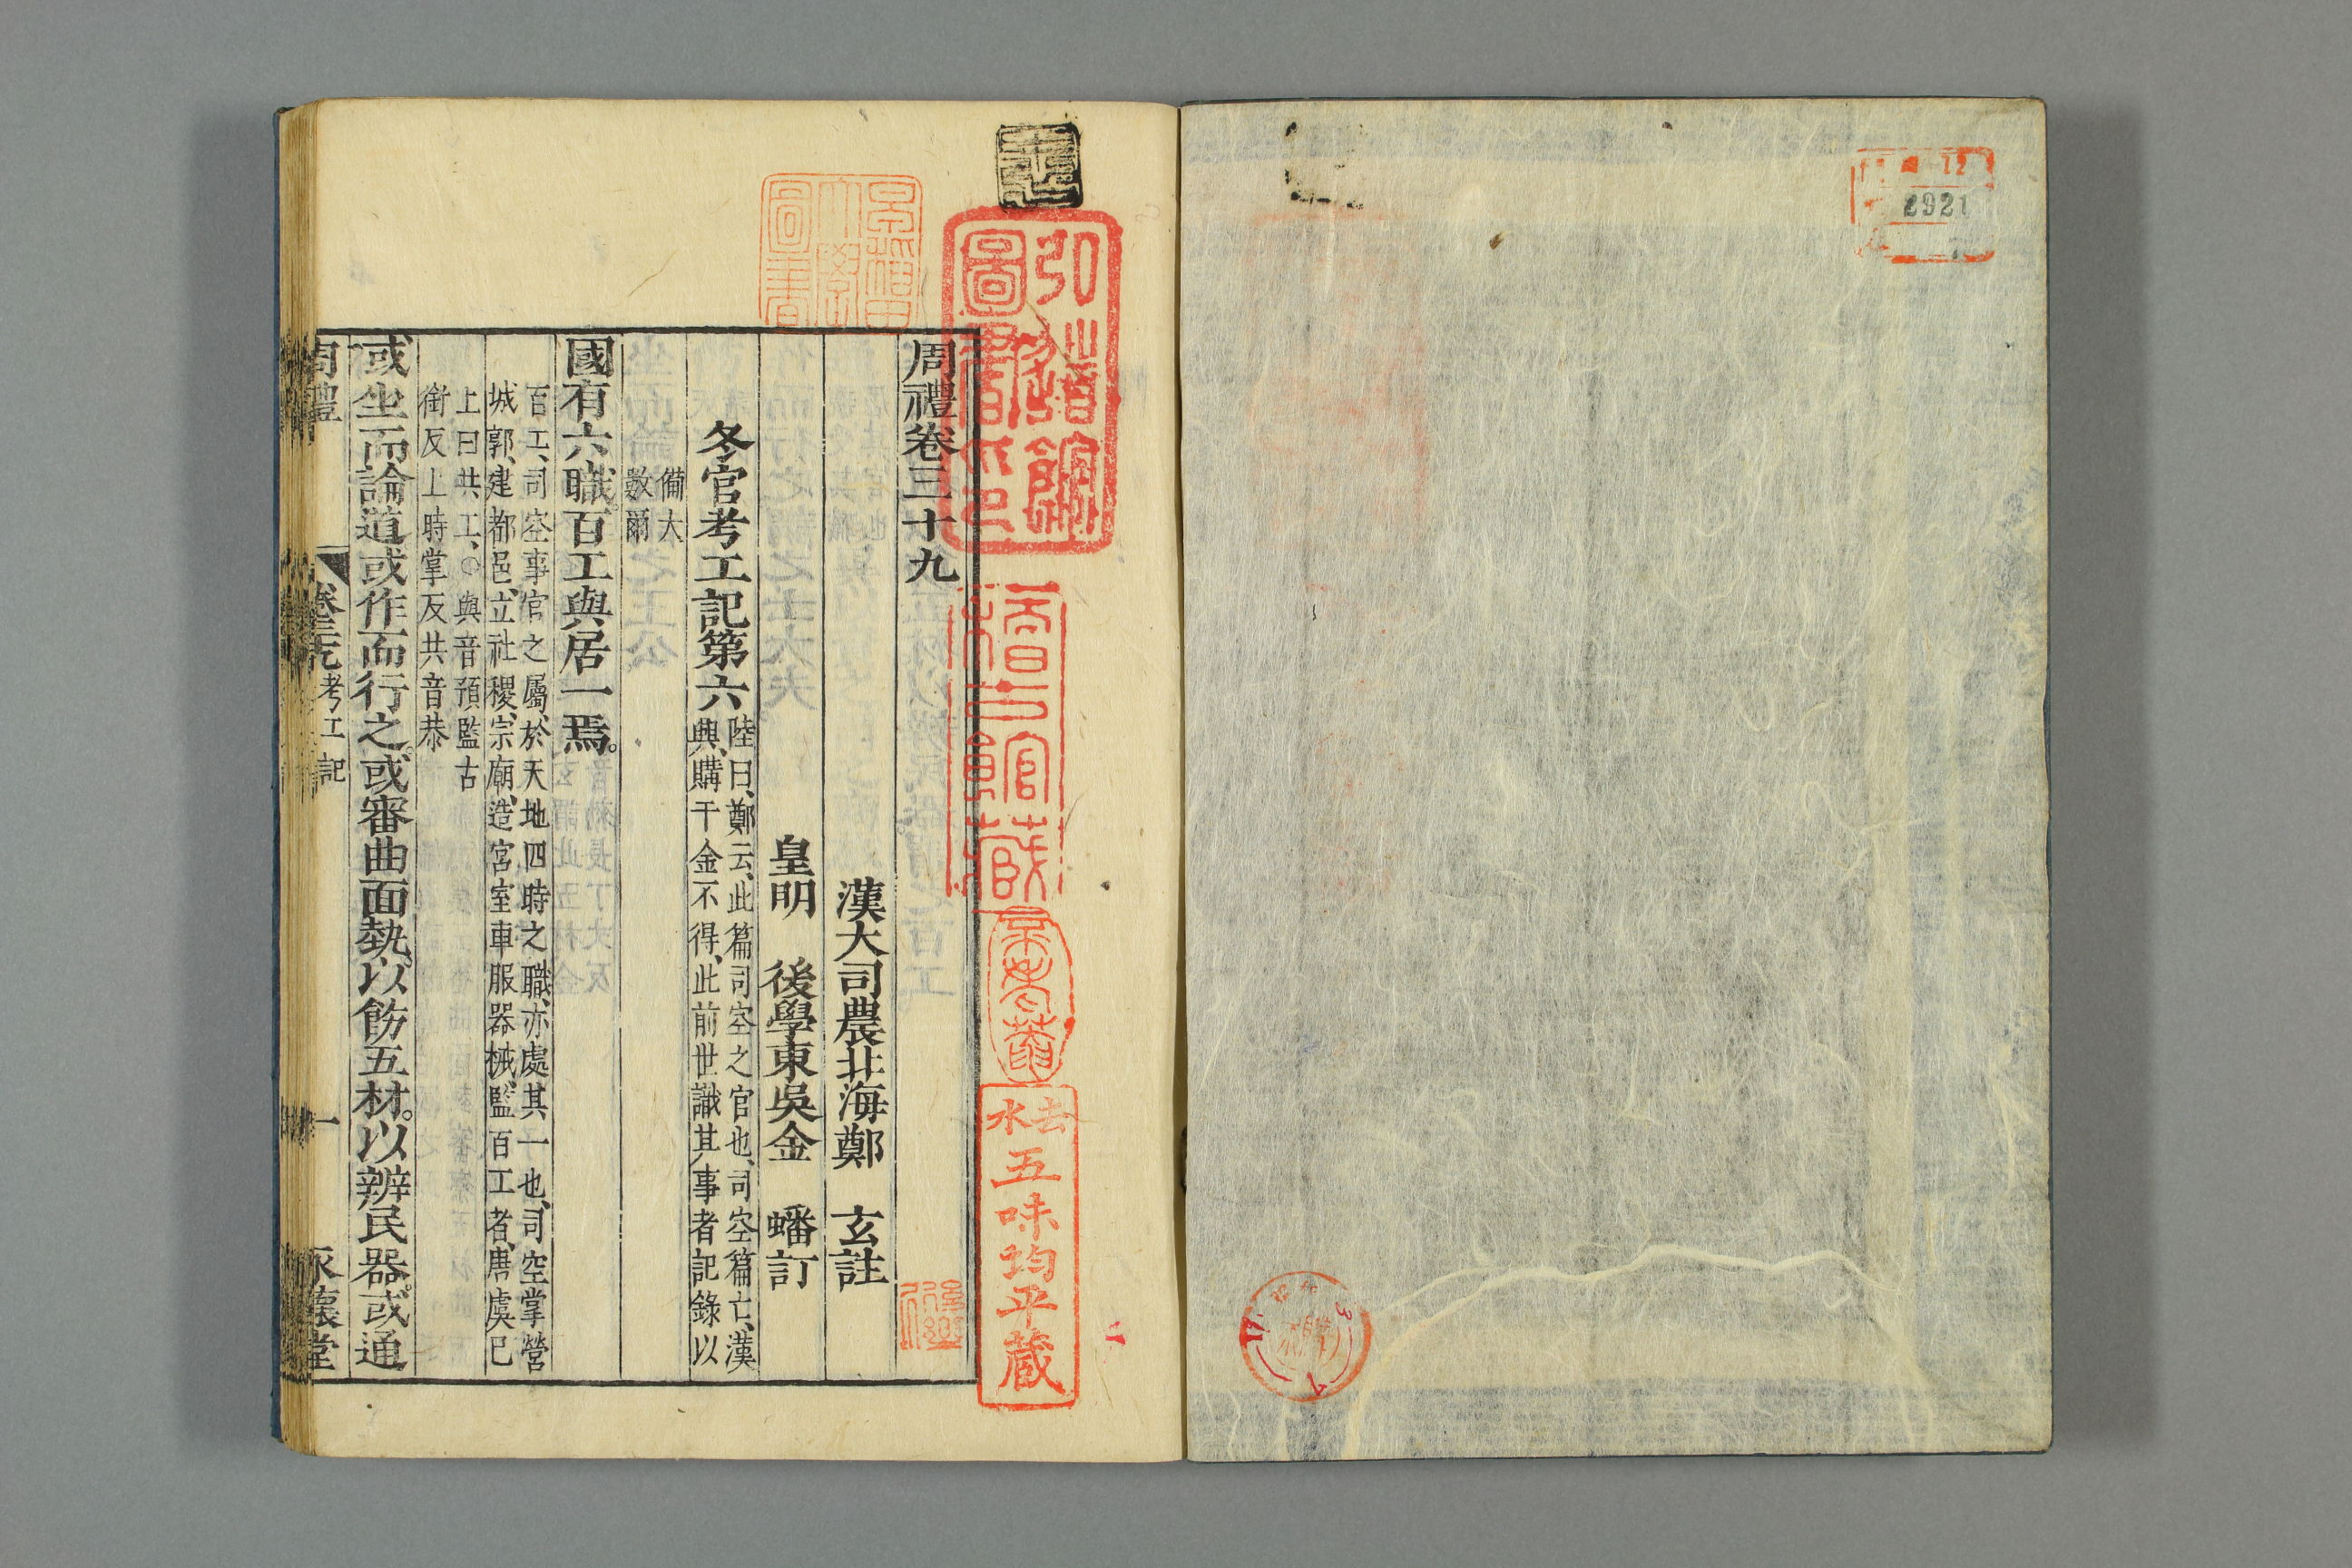 12
2921
弘道館
圖書印
早稲田
大學
圖書
稽古館藏
去水
五味均平蔵
周禮卷三十九
漢大司農北海鄭　玄註
皇明　後學東吳金　蟠訂
冬官考工記第六
陸曰、鄭云、此篇司空之官也、司空篇亡、漢
興、購千金不得、此前世識其事者記錄以
備大
數爾
國有六職。百工與居一焉。
百工、司空事官之屬、於天地四時之職、亦處其一也、司空掌營
城郭、建都邑、立社稷、宗廟、造宮室車服器械、監百工者、唐虞已
上曰共工、〇與音預監古
銜反上時掌反共音恭
或坐而論道或作而行之。或審曲面埶。以飭五材。以辨民器。或通
周禮
卷三十九考工記
一
永懷堂